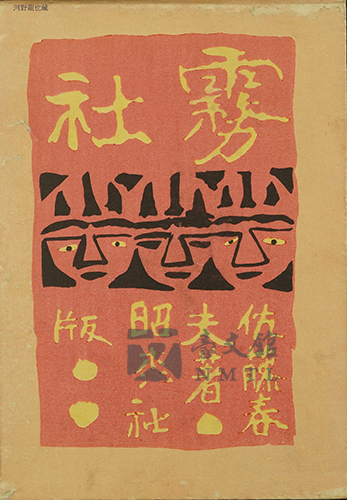 河野龍也藏
霧社
佐藤春
夫著
昭森社
版
臺文館
NMTL